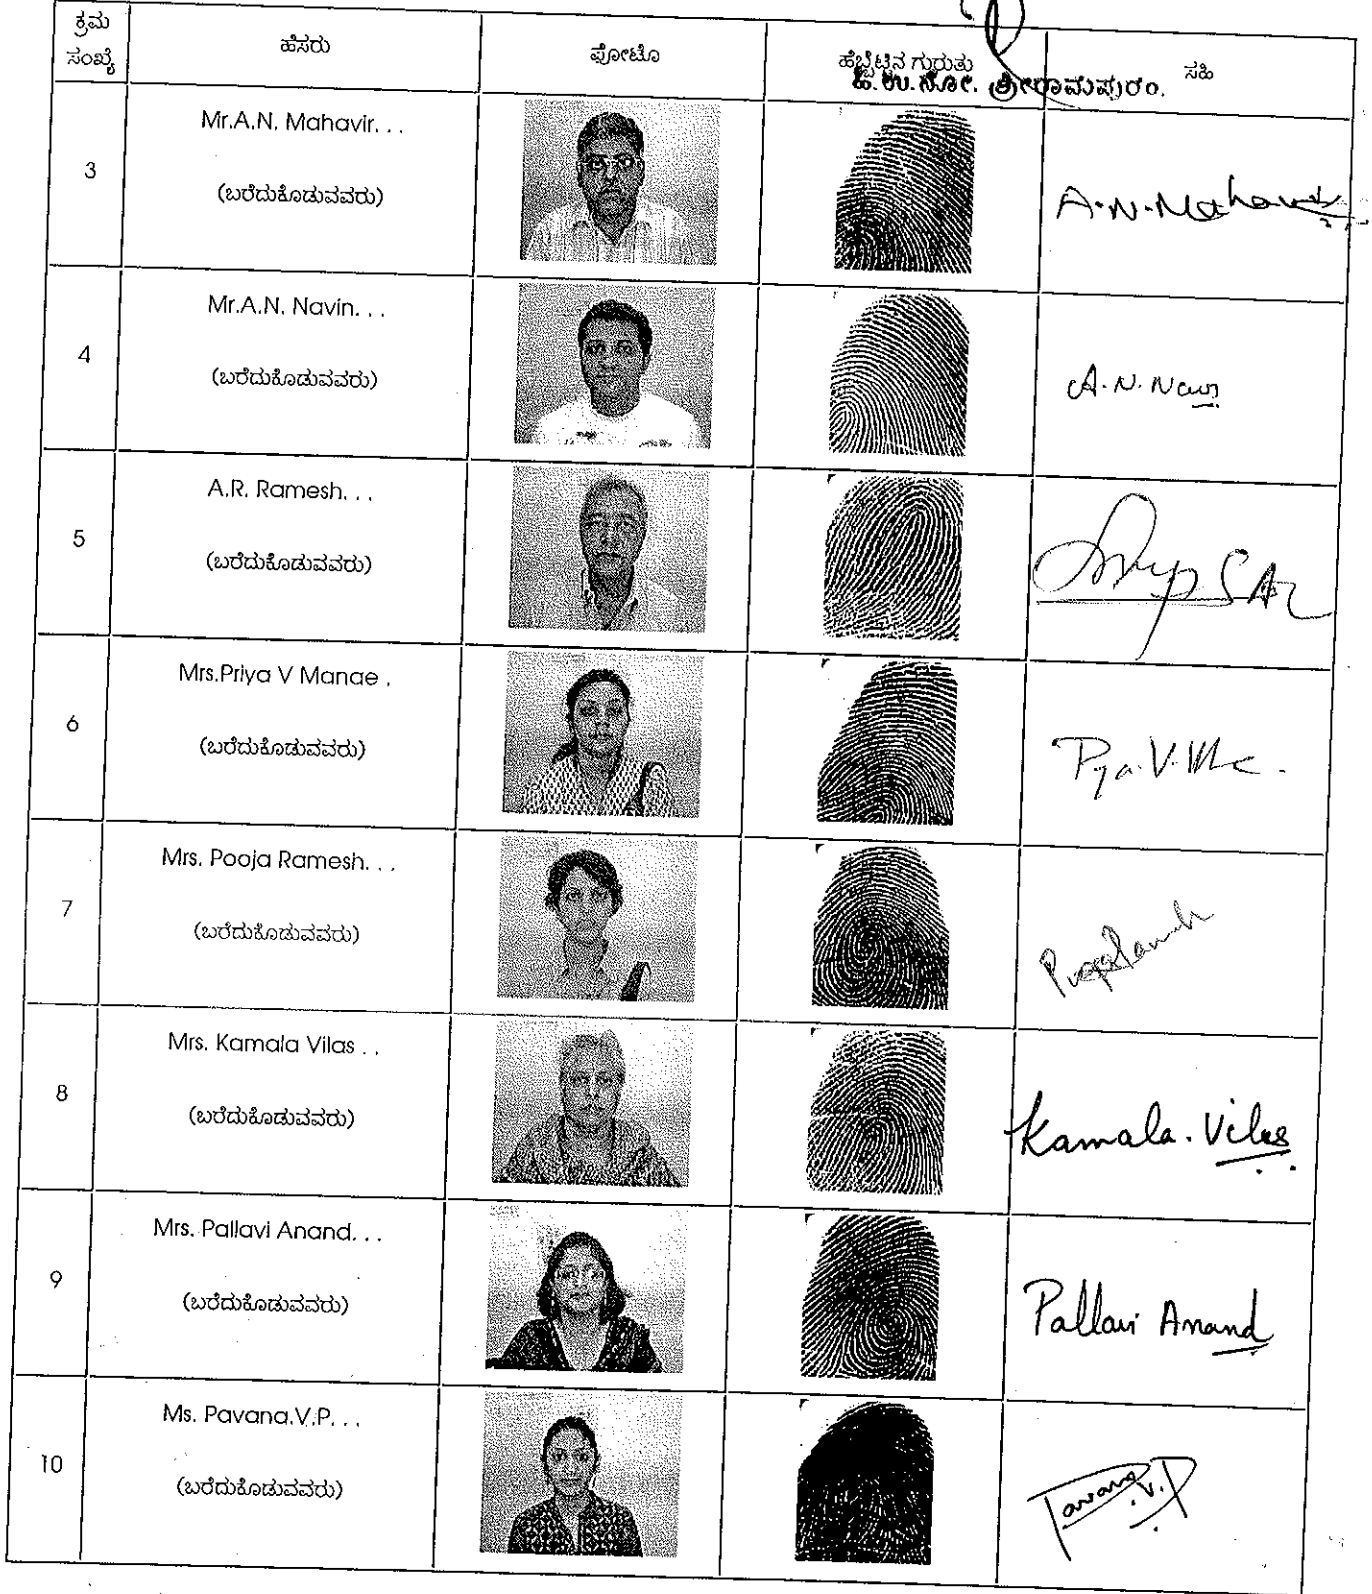 ಕ್ರಮ ಸಂಖ್ಯೆ
ಹೆಸರು
ಫೋಟೊ
ಹೆಬ್ಬೆಟ್ಟಿನ ಗುರುತು
ಸಹಿ
ಹಿ.ಉ.ನೋ. ಶ್ರೀರಾಮಪುರಂ.
3
Mr.A.N. Mahavir. . .
(ಬರೆದುಕೊಡುವವರು)
A.N.Mahavir
4
Mr.A.N. Navin. . .
(ಬರೆದುಕೊಡುವವರು)
A.N.Navin
5
A.R. Ramesh. . .
(ಬರೆದುಕೊಡುವವರು)
6
Mrs.Priya V Manae .
(ಬರೆದುಕೊಡುವವರು)
7
Mrs. Pooja Ramesh. . .
(ಬರೆದುಕೊಡುವವರು)
8
Mrs. Kamala Vilas . .
(ಬರೆದುಕೊಡುವವರು)
Kamala. Vilas
9
Mrs. Pallavi Anand. . .
(ಬರೆದುಕೊಡುವವರು)
Pallavi Anand
10
Ms. Pavana.V.P. . .
(ಬರೆದುಕೊಡುವವರು)
Pavana V.P